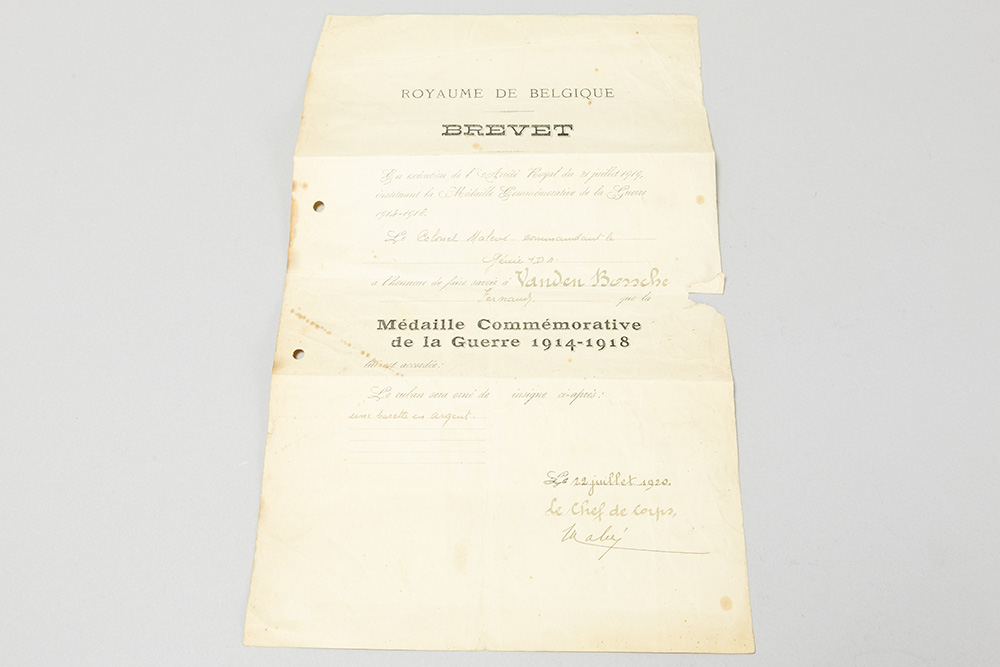 ROYAUME DE BELGIQUE
BREVET
En exécution de l'Arrêté Royal du 21 juillet 1919,
instituant la Médaille Commémorative de la Guerre
1914-1918.
Le Colonel commandant le
Génie
a l'honneur de faire savoir à Vanden Bossche
Fernand, que la
Médaille Commémorative
de la Guerre 1914-1918
accordée:
Le ruban sera orné de insigne ci-après:
une barette en argent.
Le 22 juillet 1920.
Le Chef de Corps,